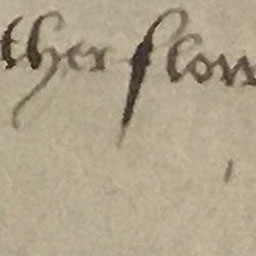 ther slow